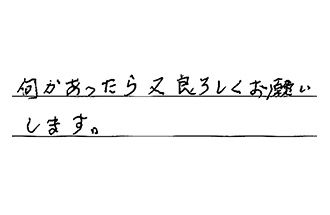 何かあったら又良ろしくお願い
します。